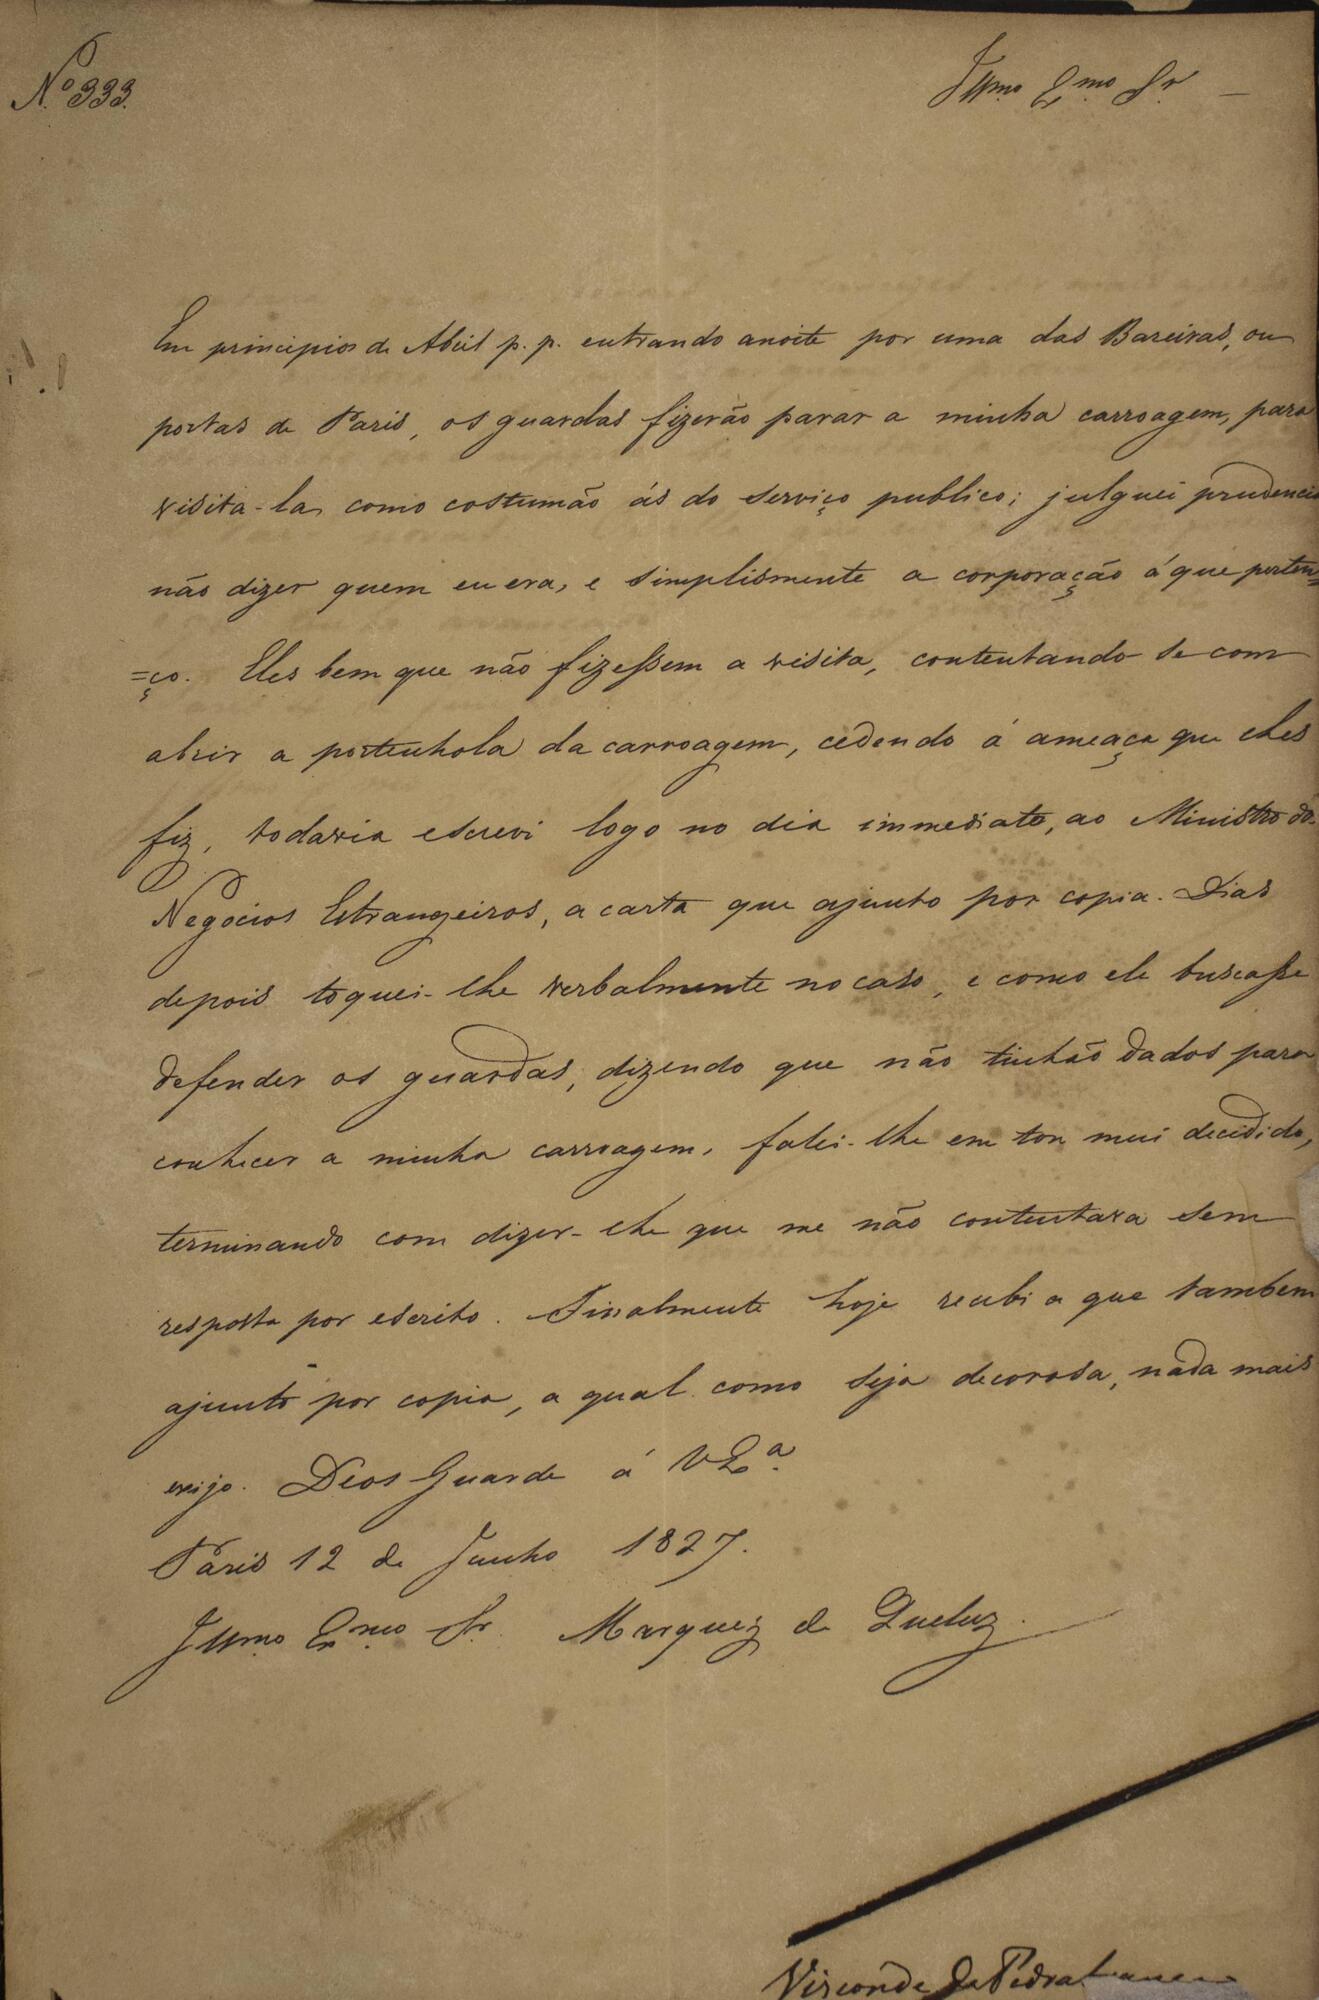 Nº 333.
Illmo Exmo Sr
Em principios de Abril p. p. entrando anoite por uma das Bareiras, ou
portas de Paris, os guardas fizerão parar a minha carroagem, para
visita-la como costumão ás do serviço publico; julguei prudencia
não dizer quem eu era, e simplismente a corporação á que perten=
=ço. Eles bem que não fizessem a visita, contentando-se com
abrir a portenhola da carroagem, cedendo á ameaça que lhes
fiz, todavia escrevi logo no dia immediato, ao Ministro do
Negocios Estrangeiros, a carta que ajunto por copia. Dias
depois toquei-lhe verbalmente no caso, e como ele buscasse
defender os guardas, dizendo que não tinhão dados para
conhecer a minha carroagem, falei-lhe em tom mui decidido,
terminando com dizer-lhe que me não contentava sem
resposta por escrito. Finalmente hoje recebi a que tambem
ajunto por copia, a qual como seja decorosa, nada mais
exijo. Deos Guarde á V Exª.
Paris 12 de Junho 1827.
Illmo Exmo Sr. Marquez de Queluz.
Visconde da Pedra Branca